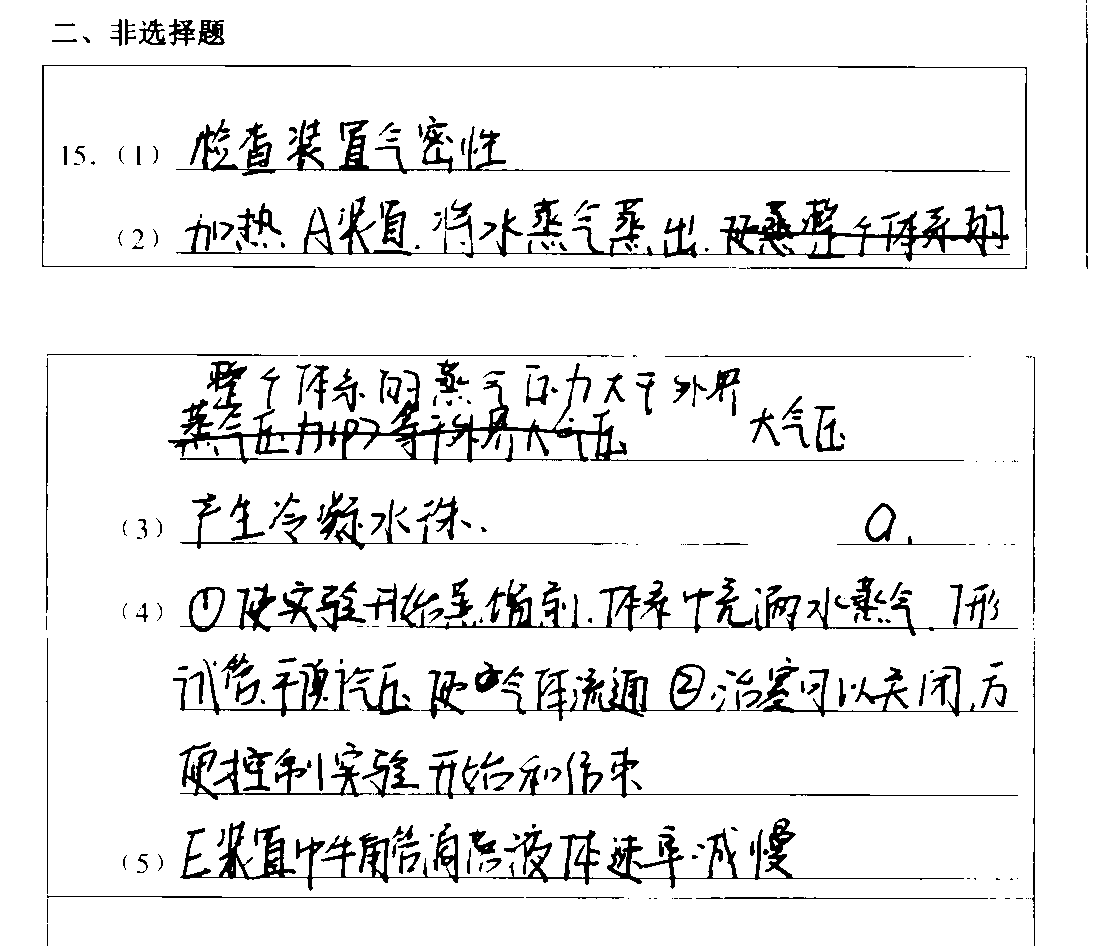 二、非选择题
15.（1）检查装置气密性
（2）加热A装置.将水蒸气蒸出.使蒸整个体系的
整个体系的蒸气压力大于外界
蒸气压力(P)等于外界大气压 大气压
（3）产生冷凝水珠. a.
（4）①使实验开始蒸馏前.体系中充满水蒸气.T形
试管平衡气压使气体流通②.活塞可以关闭,方
便控制实验开始和结束
（5）E装置中牛角管滴落液体速率减慢